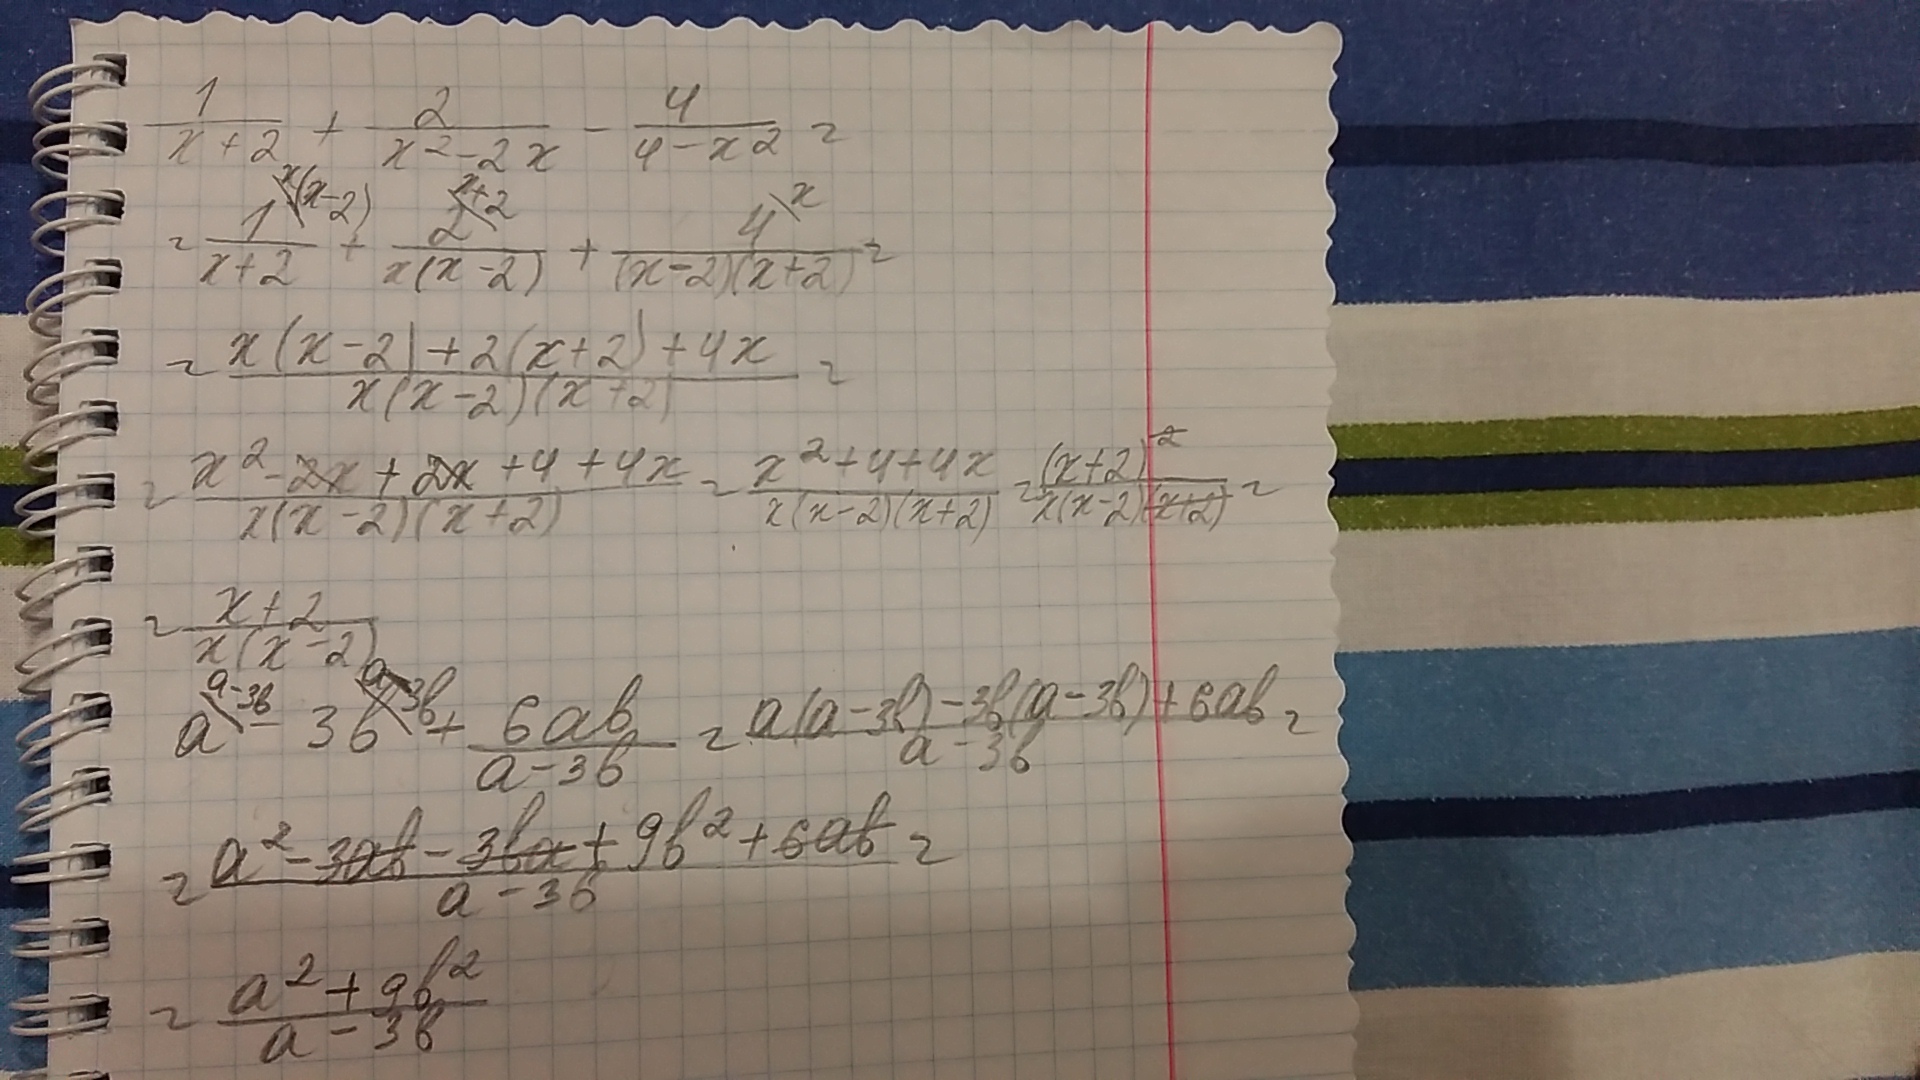 1/(x+2) + 2/(x²-2x) - 4/(4-x²) =
= 1\x(x-2)/(x+2) + 2\x+2/(x(x-2)) + 4\x/((x-2)(x+2)) =
= (x(x-2)+2(x+2)+4x)/(x(x-2)(x+2)) =
= (x²-2x+2x+4+4x)/(x(x-2)(x+2)) = (x²+4+4x)/(x(x-2)(x+2)) = (x+2)²/(x(x-2)(x+2)) =
= (x+2)/(x(x-2))
a\a-3b - 3b\a-3b + 6ab/(a-3b) = (a(a-3b)-3b(a-3b)+6ab)/(a-3b) =
= (a²-3ab-3ba+9b²+6ab)/(a-3b) =
= (a²+9b²)/(a-3b)